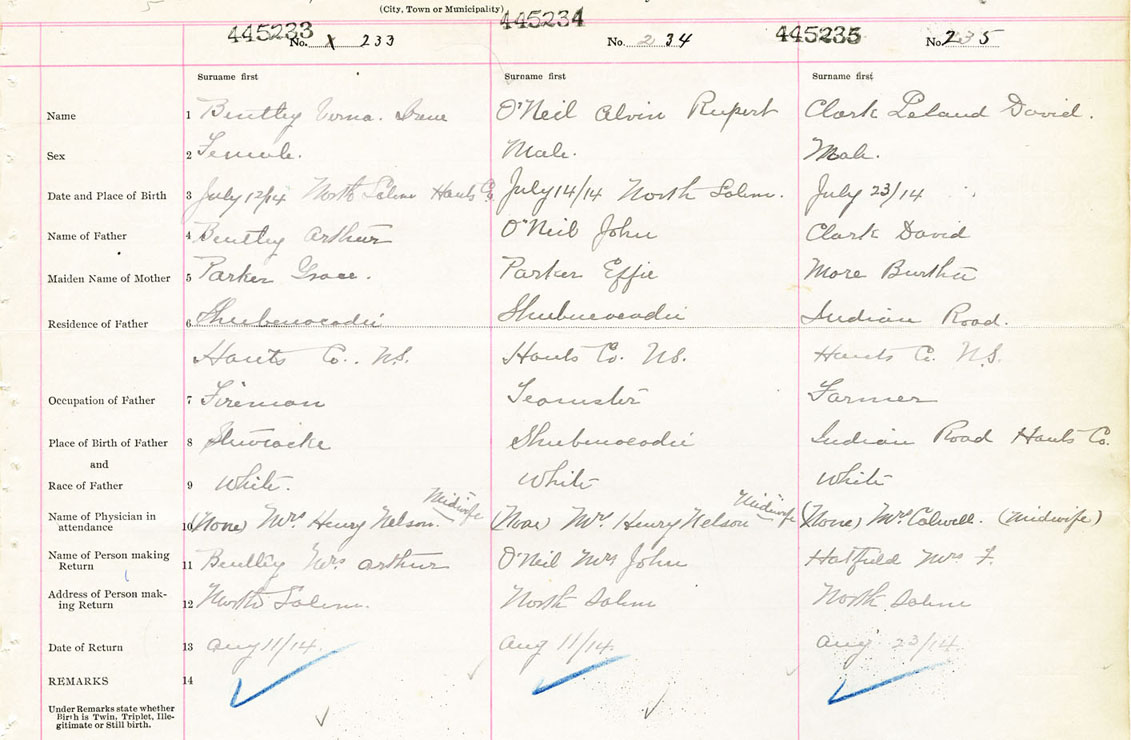 (City, Town or Municipality)
445233 No. 233 445234 No. 234 445235 No. 235
Surname first Surname first Surname first
Name 1 Bentley Verna Irene O'Neil Alvin Rupert Clark Leland David.
Sex 2 Female. Male. Male.
Date and Place of Birth 3 July 12/14 North Salem Hants Co. July 14/14 North Salem. July 23/14
Name of Father 4 Bentley Arthur O'Neil John Clark David
Maiden Name of Mother 5 Parker Grace. Parker Effie More
Residence of Father 6 Shubenacadie Shubenacadie Indian Road.
Hants Co. N.S. Hants Co. N.S. Hants Co. N.S.
Occupation of Father 7 Fireman Teamster Farmer
Place of Birth of Father 8 Shubenacadie Indian Road Hants Co.
and
Race of Father 9 White. White White
Name of Physician in
attendance 10 (None) Mrs Henry Nelson. Midwife (None) Mrs. Henry Nelson Midwife (None) Mrs Colwell. (Midwife)
Name of Person making
Return 11 Bentley Mrs Arthur O'Neil Mrs John Hatfield Mrs F.
Address of Person mak-
ing Return 12 North Salem. North Salem North Salem
Date of Return 13 Aug 11/14. Aug 11/14. Aug 23/14.
REMARKS 14
Under Remarks state whether
Birth is Twin, Triplet, Ille-
gitimate or Still birth.